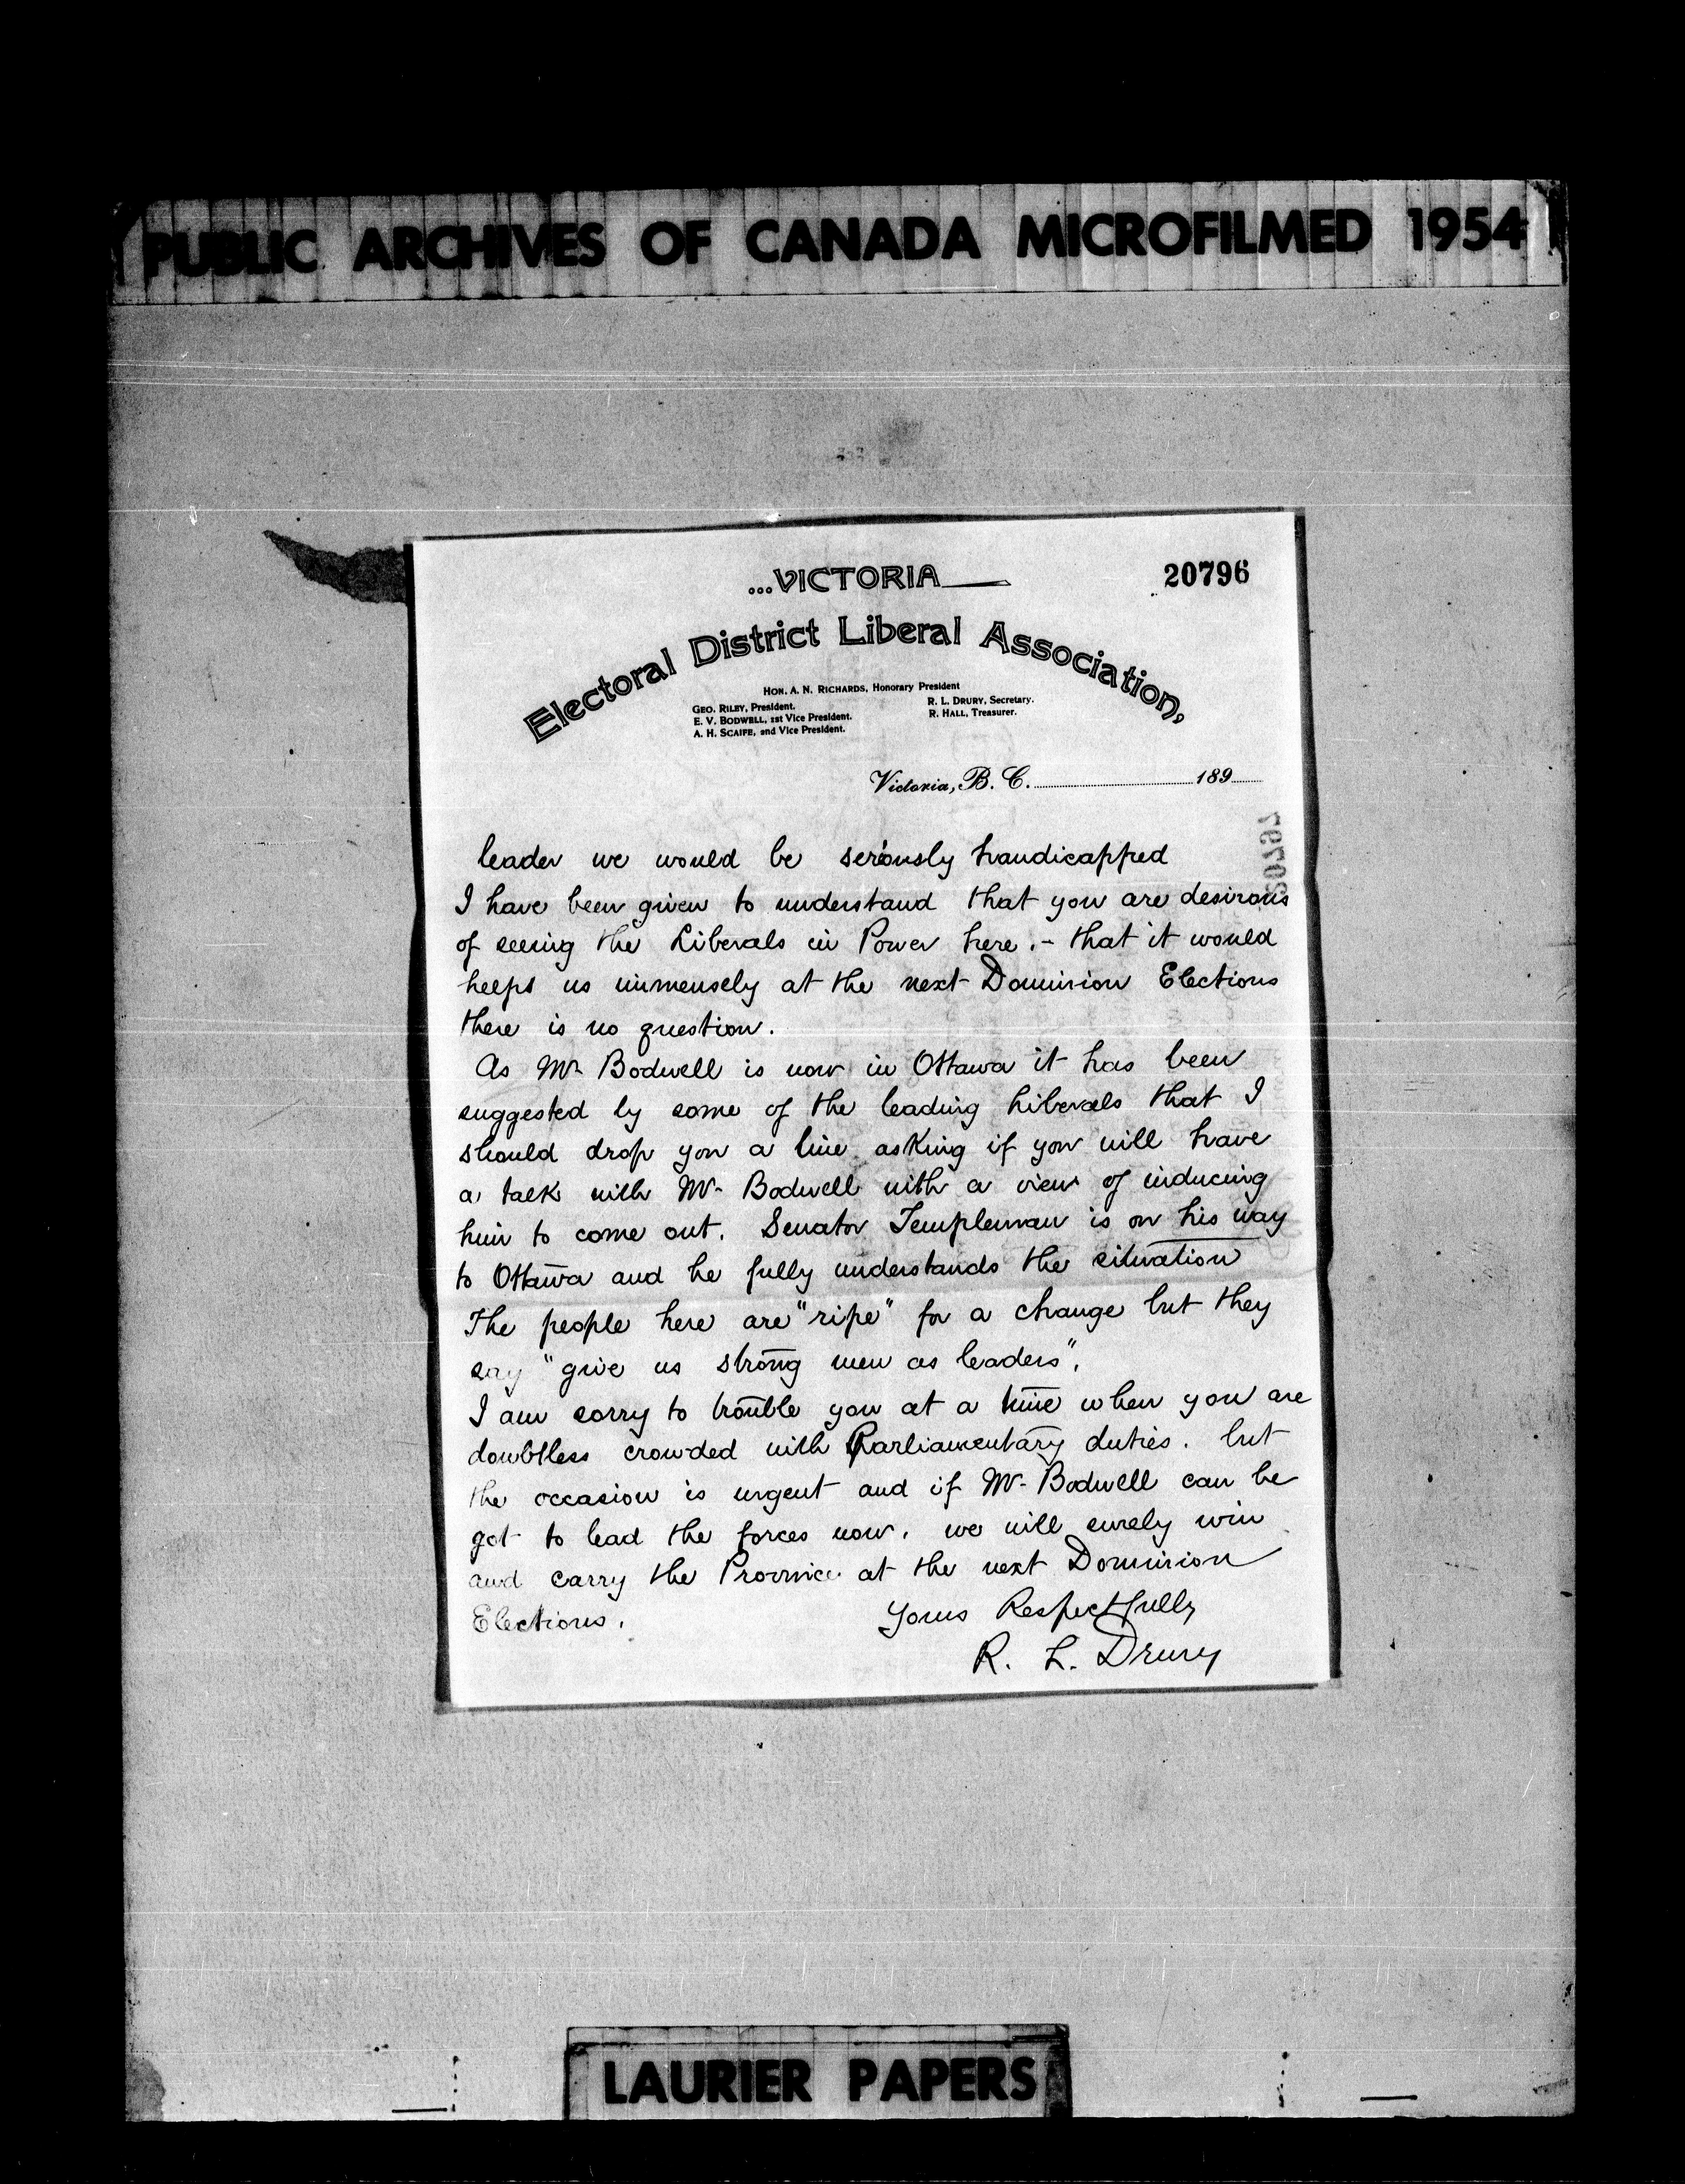 PUBLIC ARCHIVES OF CANADA MICROFILMED 1954
...VICTORIA
20796
Electoral District Liberal Association,
HON. A. N. RICHARDS, Honorary President
GEO. RILEY, President.
E. V. BODWELL, 1st Vice President.
A. H. SCAIFE, 2nd Vice President.
R. L. DRURY, Secretary.
R. HALL, Treasurer.
Victoria, B. C. 189
20797
leader we would be seriously handicapped
I have been given to understand that you are desirous
of seeing the Liberals in Power here. - that it would
helps us immensely at the next Dominion Elections
there is no question.
As Mr Bodwell is now in Ottawa it has been
suggested by some of the leading Liberals that I
should drop you a line asking if you will have
a talk with Mr Bodwell with a view of inducing
him to come out. Senator Templeman is on his way
to Ottawa and he fully understands the situation
The people here are "ripe" for a change but they
say "give us strong men as leaders".
I am sorry to trouble you at a time when you are
doubtless crowded with Parliamentary duties. but
the occasion is urgent and if Mr Bodwell can be
got to lead the forces now, we will surely win
and carry the Province at the next Dominion
Elections.
Yours Respectfully
R. L. Drury
LAURIER PAPERS